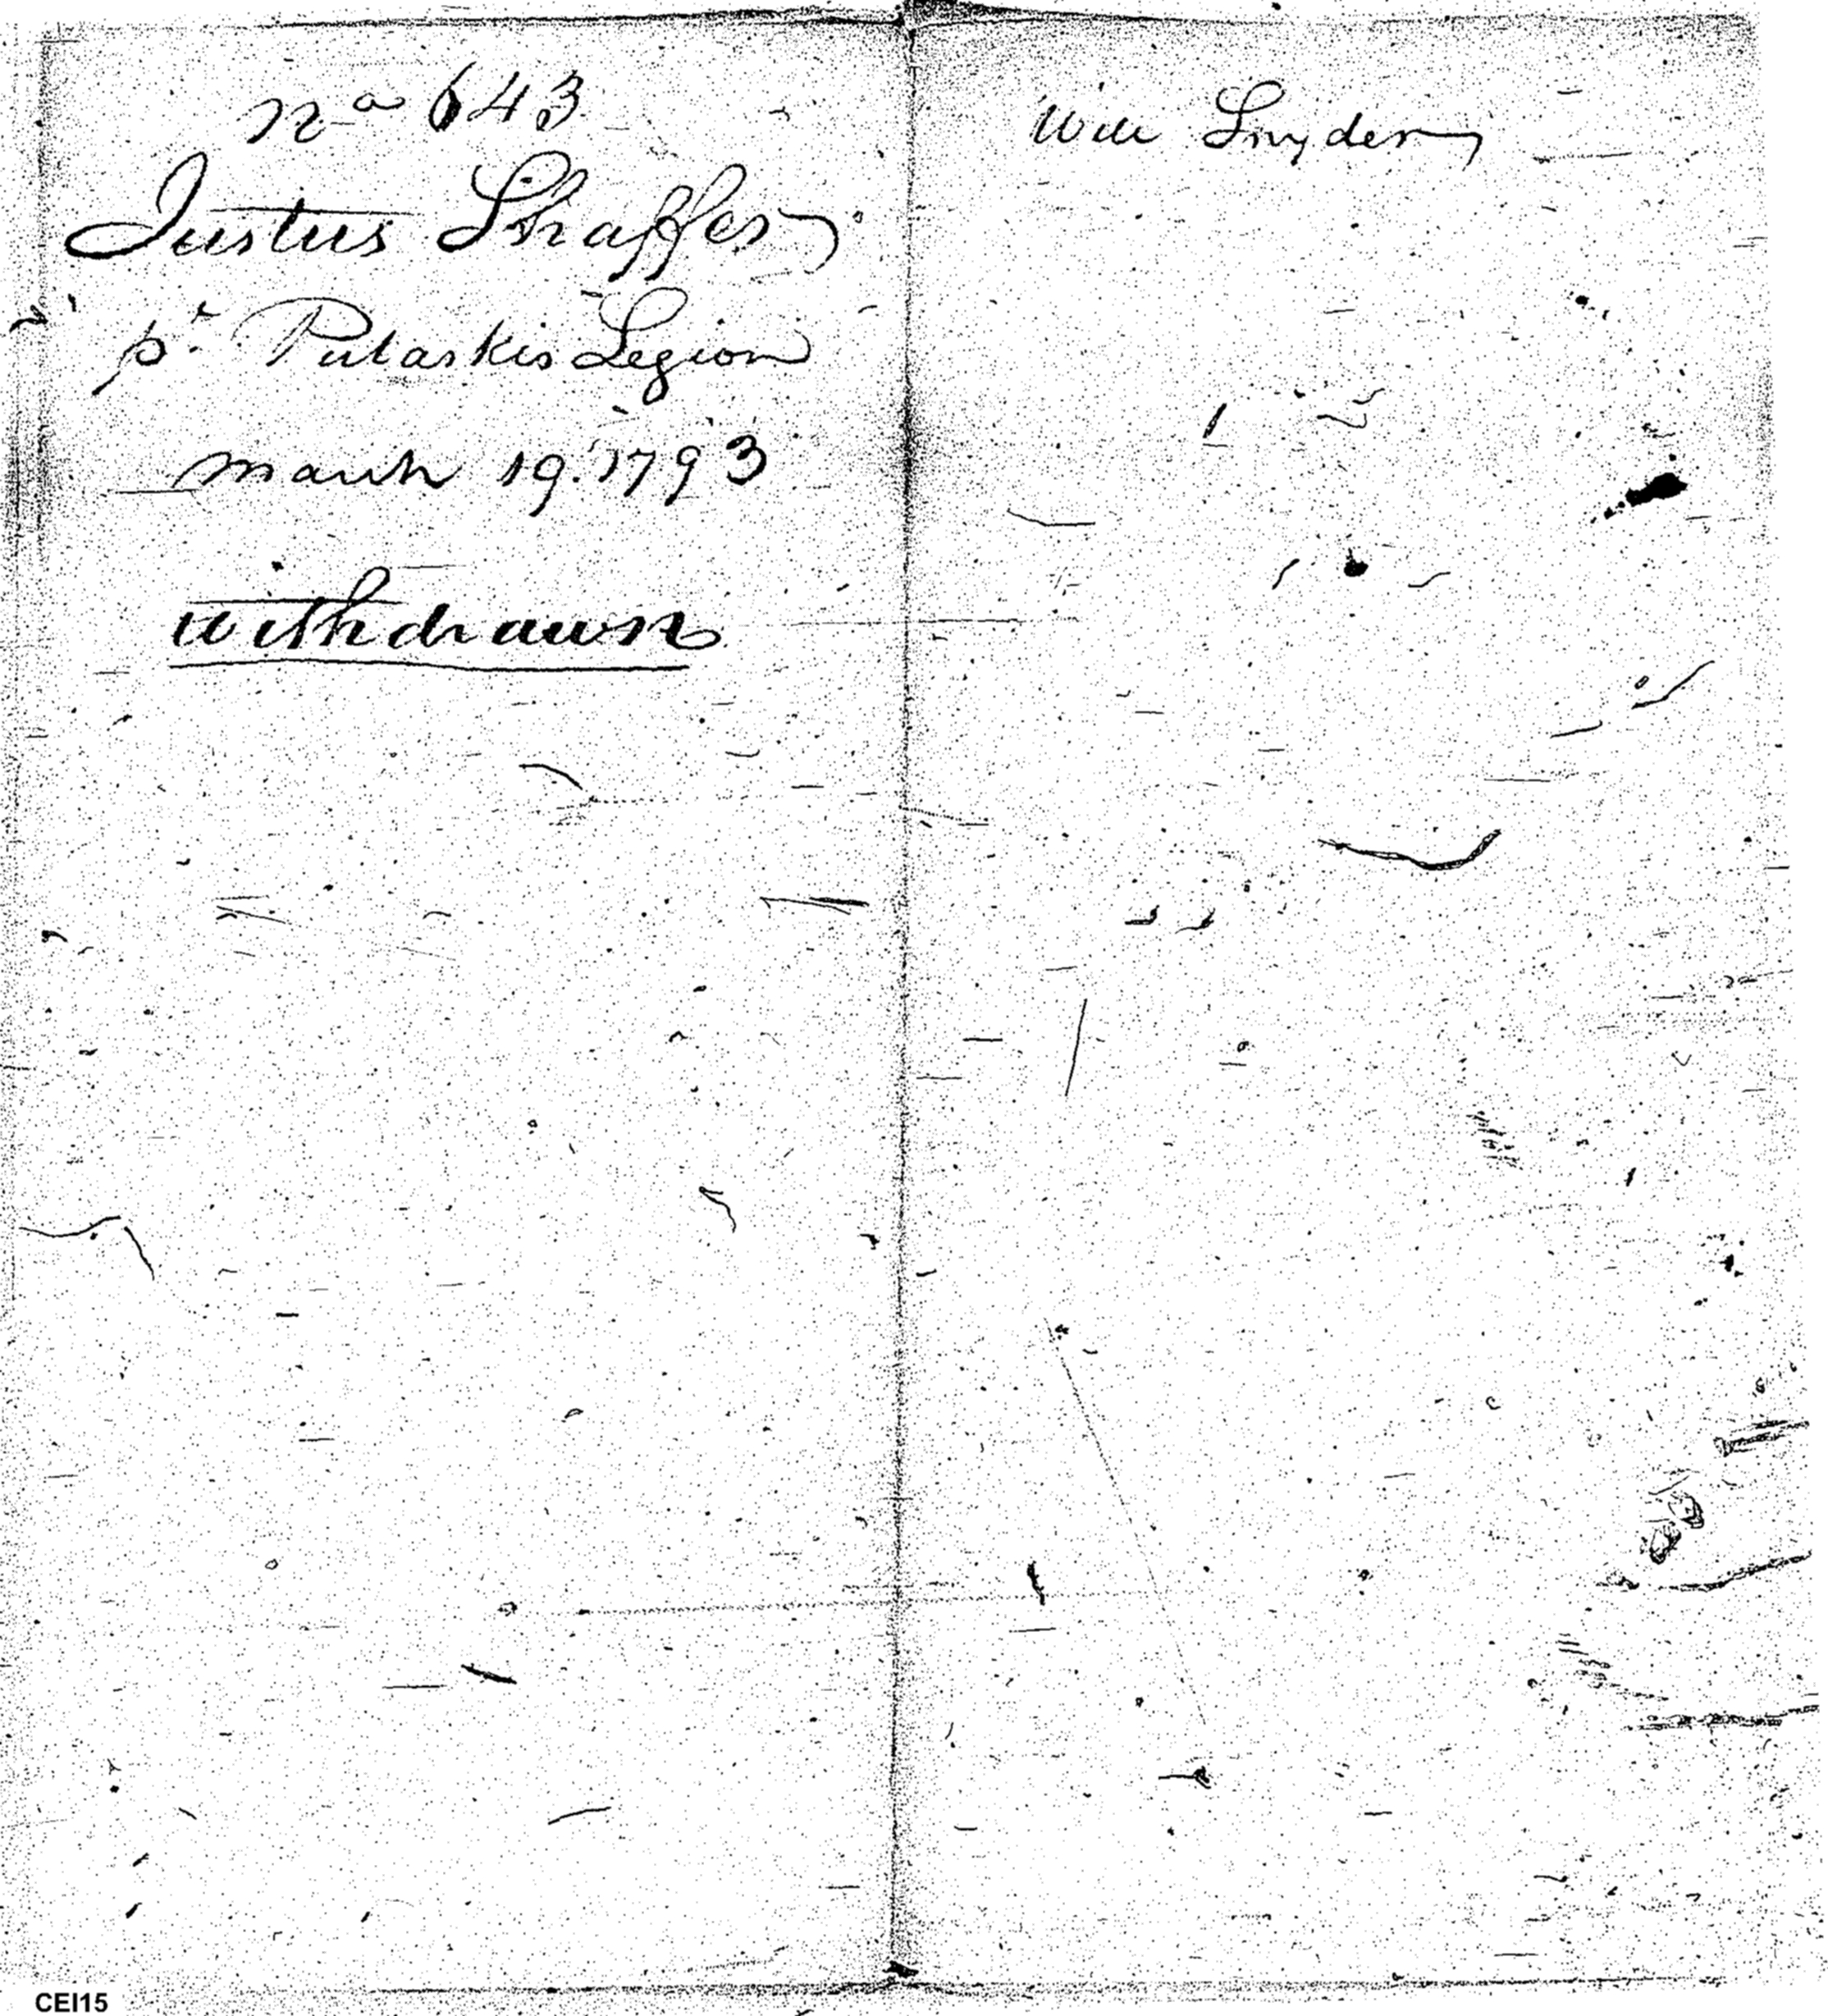 No 643
Justus Shaffer
pt. Pulaskis Legion
March 19. 1793
withdrawn
Will Snyder
CEI15